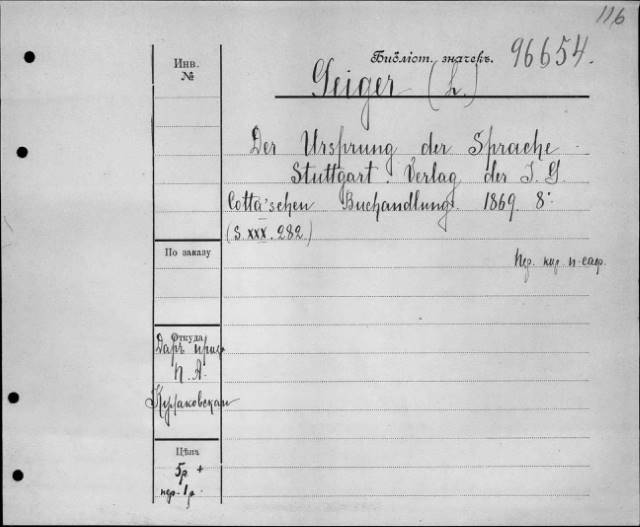 116
Библіот. значекъ. 96654.
Инв.
№
Geiger (L.)
Der Ursprung der Sprache
Stuttgart. Verlag der I. G.
Cotta'schen Buchandlung. 1869. 8°.
(S. XXX. 282.)
По заказу
пер. кор. и сафр.
Откуда
Даръ проф.
П. А.
Цѣна
5р. +
пер. 1р.